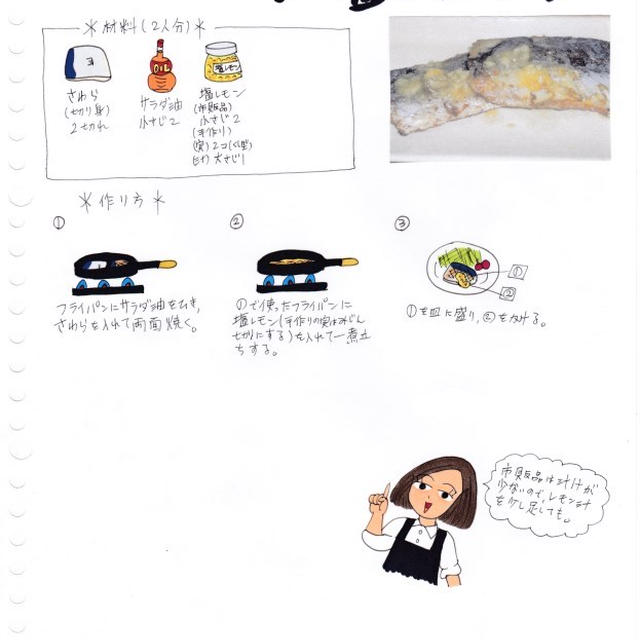 ＊材料(２人分)＊
さわら
(切り身)
２切れ
OIL
サラダ油
小さじ２
塩レモン
塩レモン
(市販品)
小さじ２
(手作り)
(実)２コ(くし型)
(汁)大さじ１
＊作り方＊
①
フライパンにサラダ油をひき、
さわらを入れて両面焼く。
②
①で使ったフライパンに
塩レモン(手作りの実はみじん
切りにする)を入れて一煮立
ちする。
③
①
②
①を皿に盛り、②をかける。
市販品は汁けが
少ないので、レモン汁
を少し足しても。